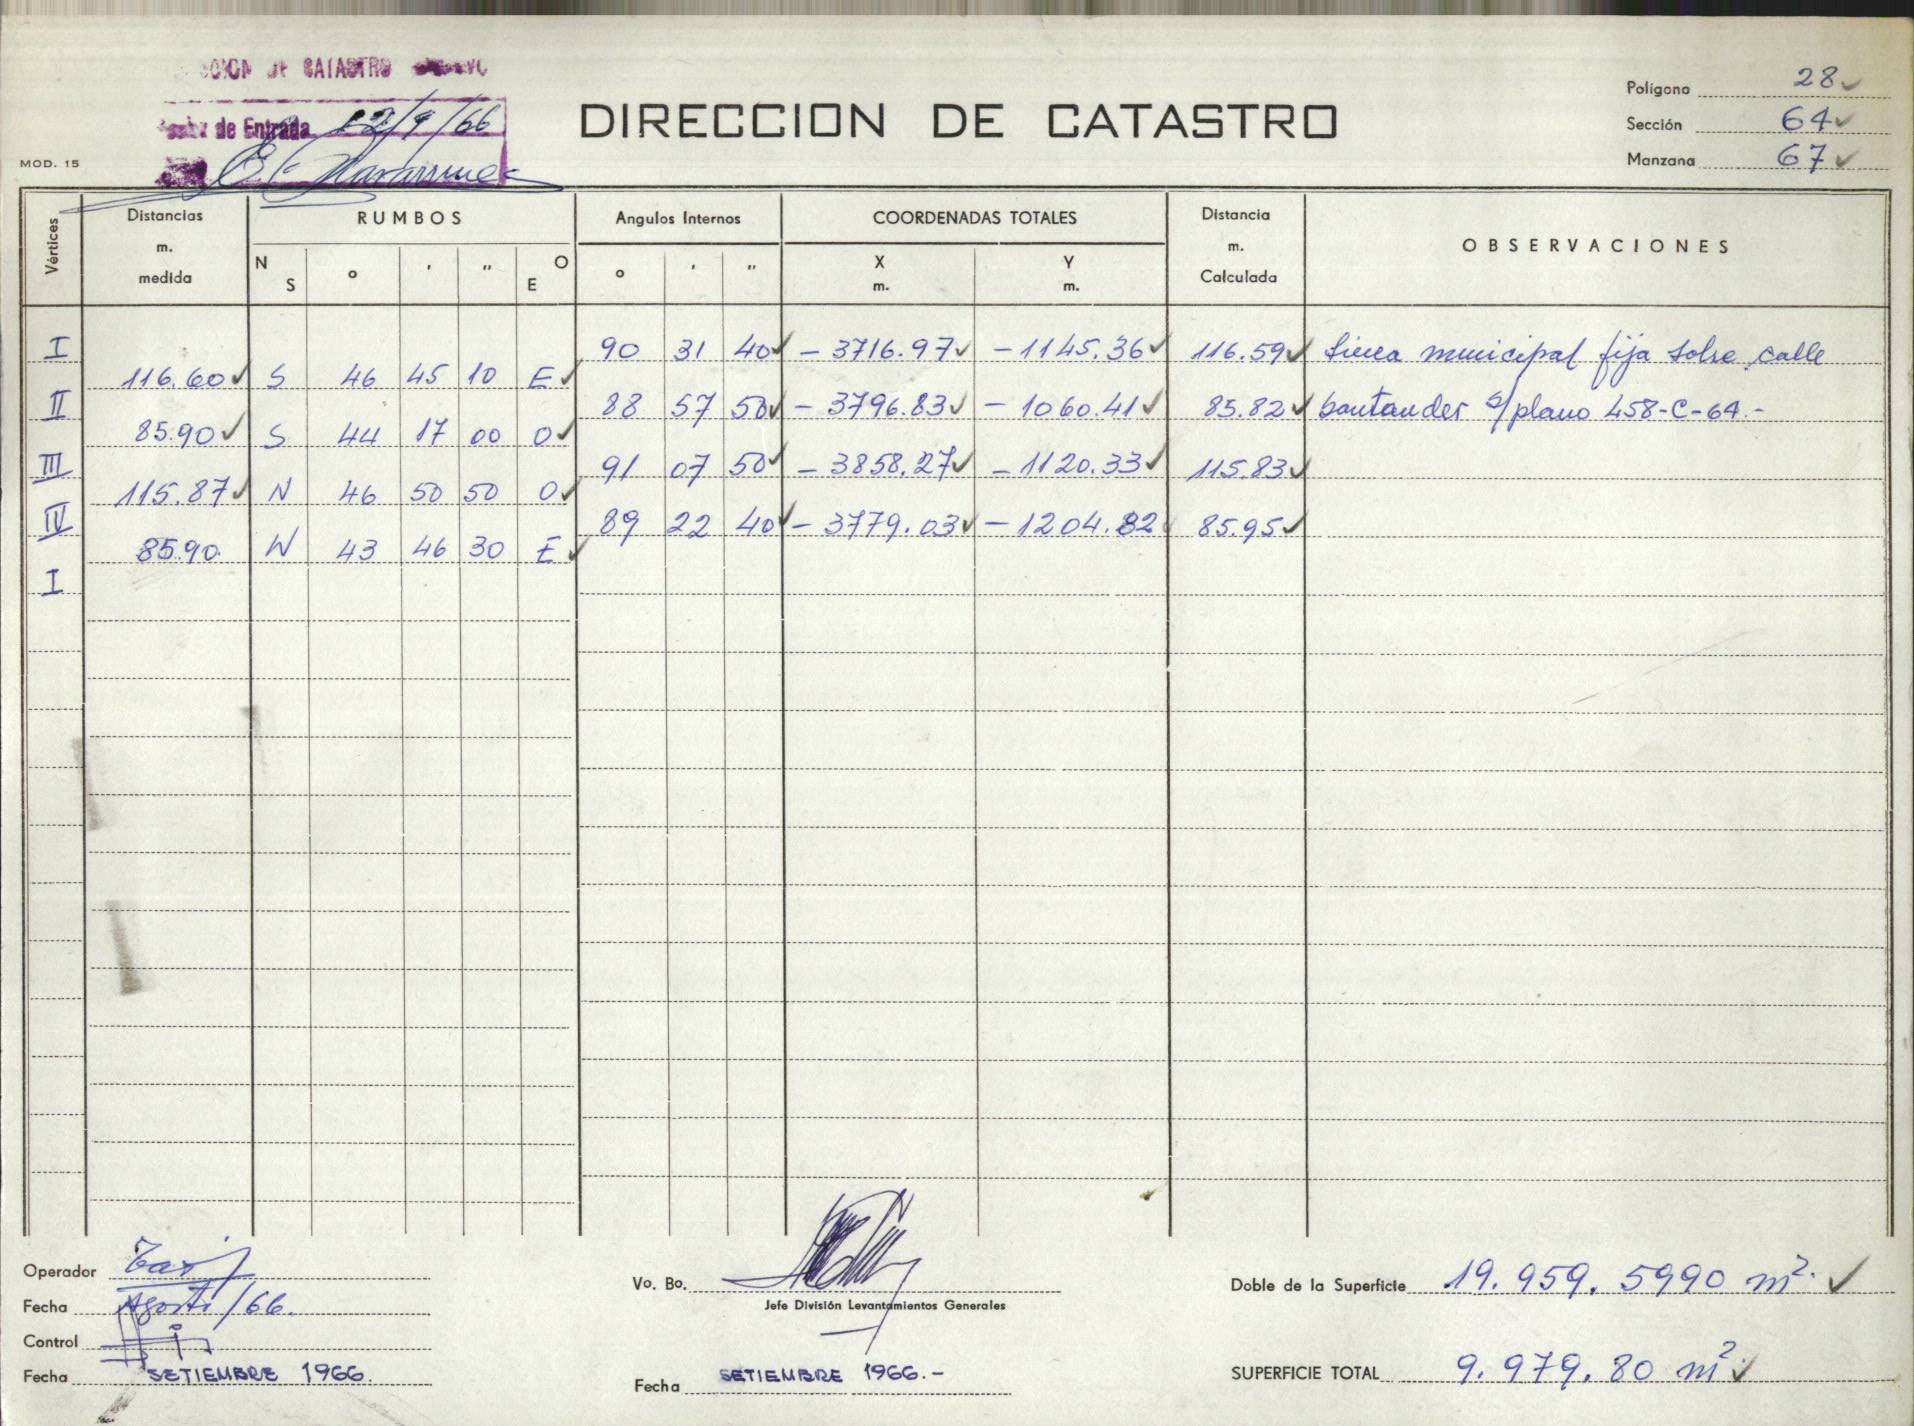 DE CATASTRO
de Entrada 22/9/66
DIRECCION DE CATASTRO
MOD. 15
Polígono 28
Sección 64
Manzana 67
Vértices
Distancias m. medida
RUMBOS
N S ° ' " O E
Angulos Internos
° ' "
COORDENADAS TOTALES
X m. Y m.
Distancia m. Calculada
OBSERVACIONES
I 90 31 40 - 3716.97 - 1145.36 116.59 Linea municipal fija sobre calle
116.60 S 46 45 10 E
II 88 57 50 - 3796.83 - 1060.41 85.82 Santander s/plano 458-C-64.-
85.90 S 44 17 00 O
III 91 07 50 - 3858.27 - 1120.33 115.83
115.87 N 46 50 50 O
IV 89 22 40 - 3779.03 - 1204.82 85.95
85.90 N 43 46 30 E
I
Operador
Fecha Agosto/66.
Control
Fecha SETIEMBRE 1966.
Vo. Bo.
Jefe División Levantamientos Generales
Fecha SETIEMBRE 1966.-
Doble de la Superficie 19.959.5990 m².
SUPERFICIE TOTAL 9.979.80 m²